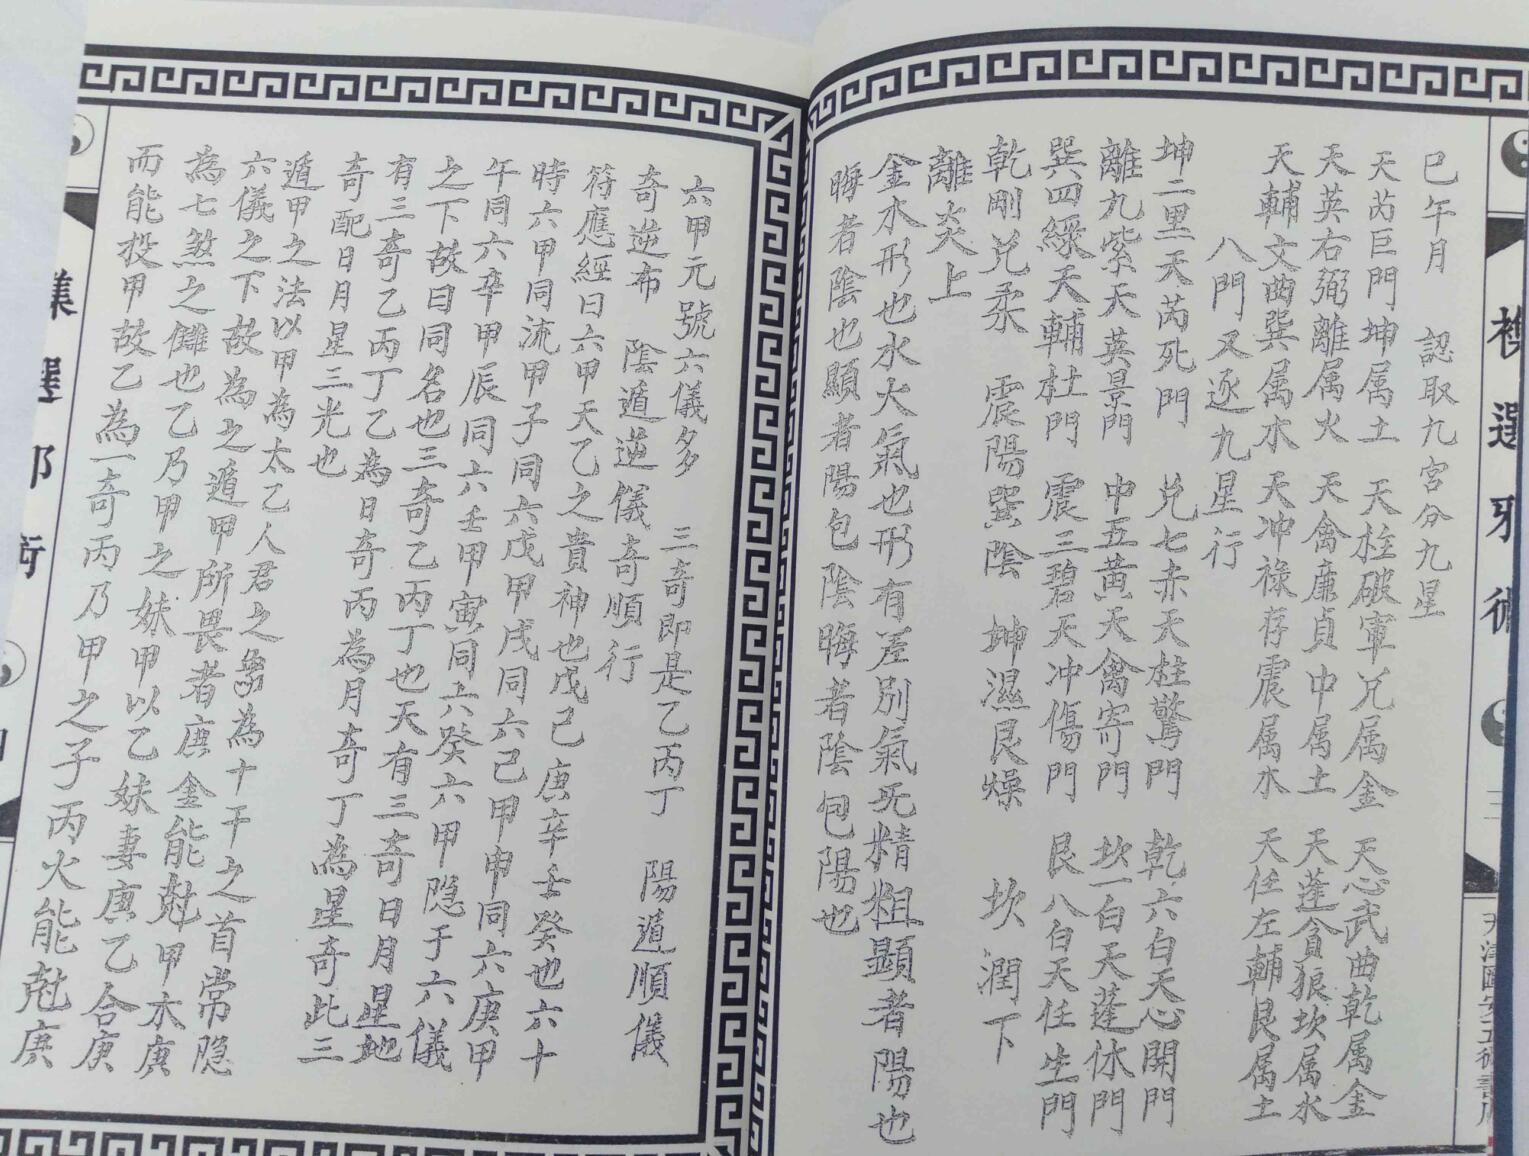 巳午月　認取九宮分九星
天芮巨門坤属土　天柱破軍兌属金　天心武曲乾属金
天英右弼離属火　天禽廉貞中属土　天蓬貪狼坎属水
天輔文曲巽属水　天冲祿存震属水　天任左輔艮属土
八門又逐九星行
坤二黒天芮死門　兌七赤天柱驚門　乾六白天心開門
離九紫天英景門　中五黃天禽寄門　坎一白天蓬休門
巽四綠天輔杜門　震三碧天冲傷門　艮八白天任生門
乾剛兌柔　震陽巽陰　坤濕艮燥　坎潤下
離炎上
金水形也水火氣也形有差別氣旡精粗顯者陽也
晦者陰也顯者陽包陰晦者陰包陽也
六甲元號六儀多　三奇即是乙丙丁　陽遁順儀
奇逆布　陰遁逆儀奇順行
符應經曰六甲天乙之貴神也戊己庚辛壬癸也六十
時六甲同流甲子同六戊甲戌同六己甲申同六庚甲
午同六辛甲辰同六壬甲寅同六癸六甲隐于六儀
之下故曰同名也三奇乙丙丁也天有三奇日月星地
有三奇乙丙丁乙為日奇丙為月奇丁為星奇此三
奇配日月星三光也
遁甲之法以甲為太乙人君之象為十干之首常隐
六儀之下故為之遁甲所畏者庚金能尅甲木庚
為七煞之讎也乙乃甲之妹甲以乙妹妻庚乙合庚
而能投甲故乙為一奇丙乃甲之子丙火能尅庚